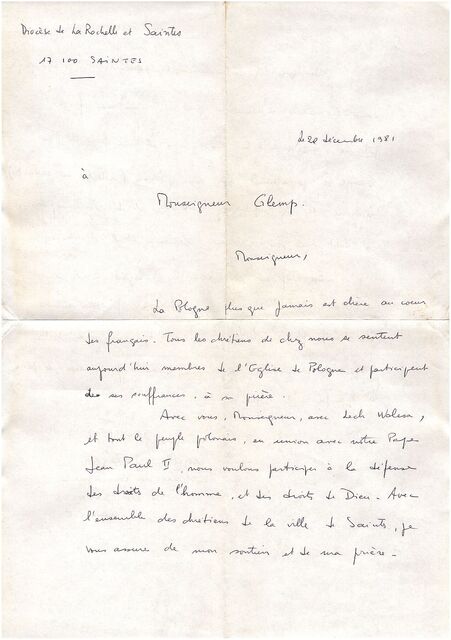 Diocèse de La Rochelle et Saintes
17 100 SAINTES
le 22 décembre 1981
à
Monseigneur Glemp.
Monseigneur,
La Pologne plus que jamais est chère au coeur
des français. Tous les chrétiens de chez nous se sentent
aujourd'hui membres de l'Eglise de Pologne et participent
de ses souffrances, à sa prière.
Avec vous, Monseigneur, avec Lech Walesa,
et tout le peuple polonais, en union avec notre Pape
Jean Paul II, nous voulons participer à la défense
des droits de l'homme, et des droits de Dieu. Avec
l'ensemble des chrétiens de la ville de Saints, je
vous assure de mon soutien et de ma prière.